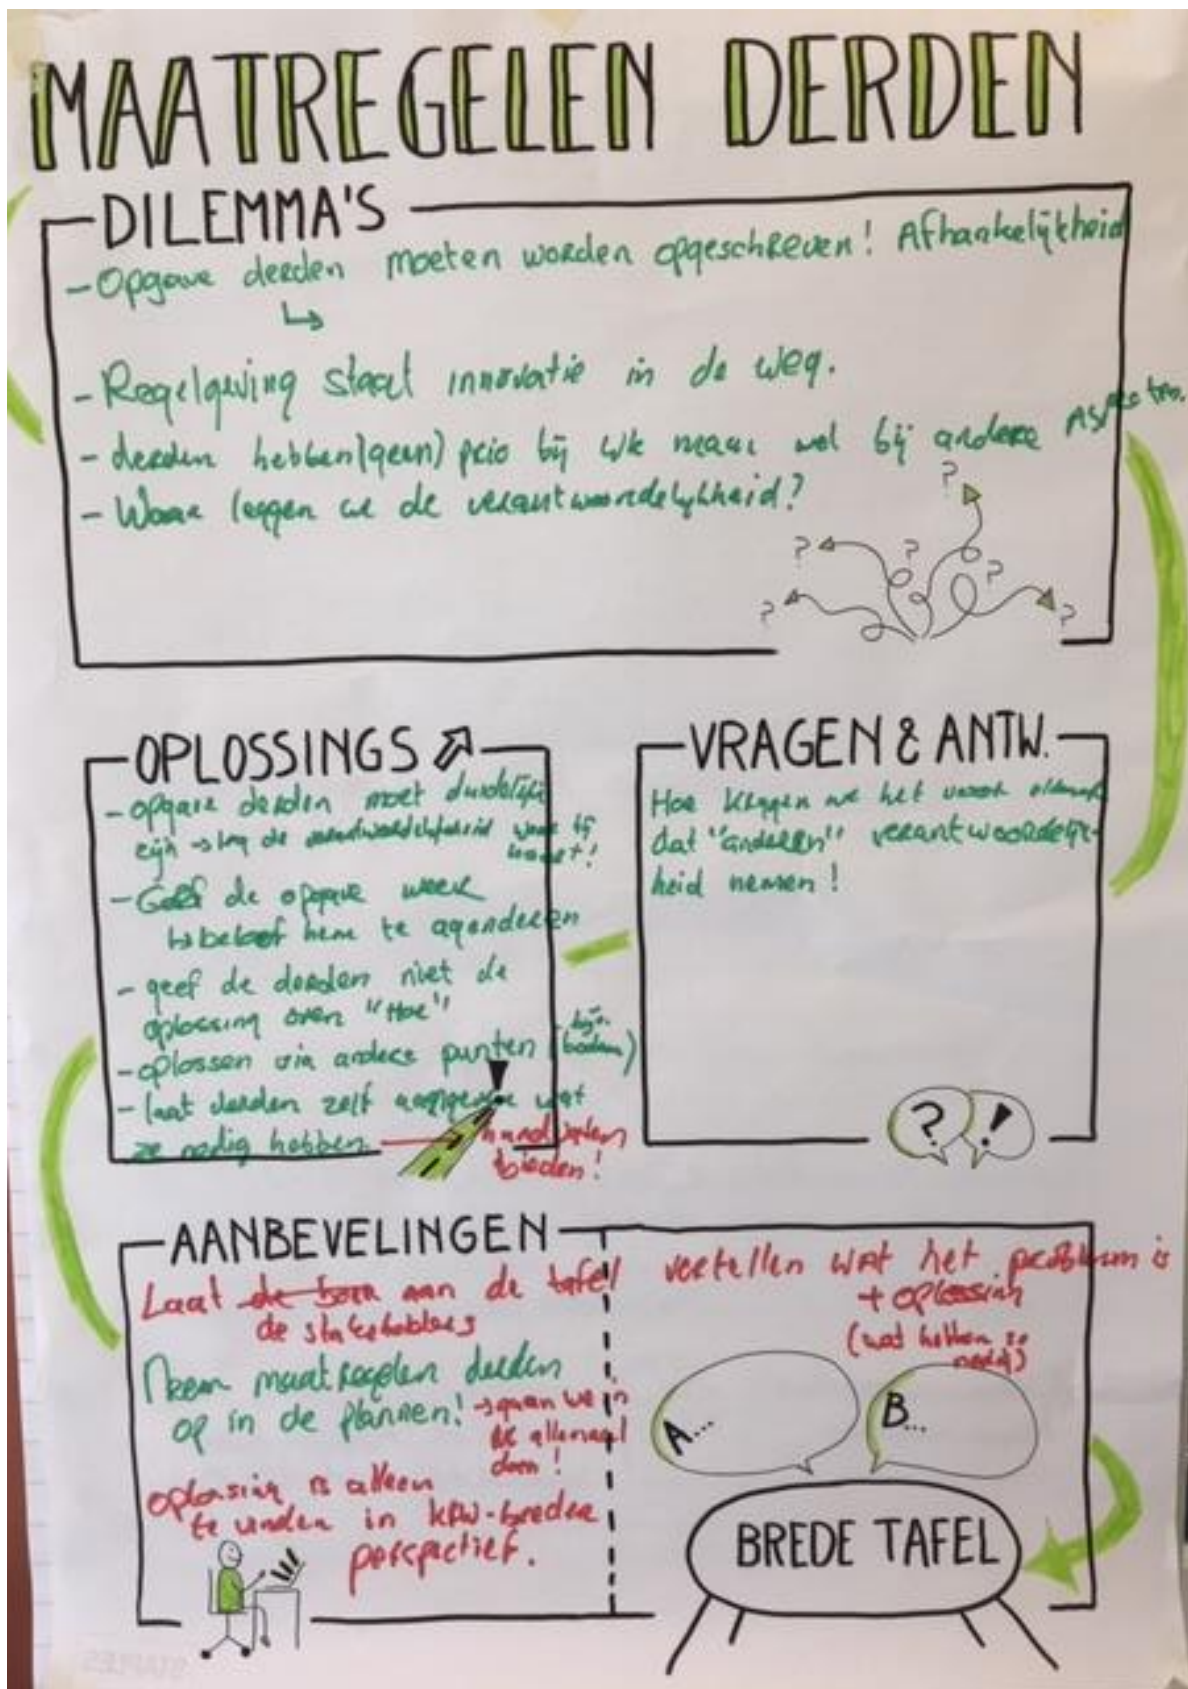 MAATREGELEN DERDEN
DILEMMA'S
- Opgave derden moeten worden opgeschreven! Afhankelijkheid
↳
- Regelgeving staat innovatie in de weg.
- derden hebben (geen) prio bij maar wel bij andere Aspecten.
- Waar leggen we de verantwoordelijkheid?
? ? ? ? ? ?
OPLOSSINGS
- opgave derden moet duidelijk
zijn → leg de verantwoordelijkheid waar hij
hoort!
- Geef de opgave weer
↳ beloof hem te agenderen
- geef de derden niet de
oplossing over "Hoe"
- oplossen via andere punten (bijv.
bodem)
- laat derden zelf aangeven wat
ze nodig hebben.
bieden!
VRAGEN & ANTW.
Hoe krijgen we het voor elkaar
dat "anderen" verantwoordelijk-
heid nemen!
? !
AANBEVELINGEN
Laat de aan de tafel vertellen wat het probleem is
de stakeholders
+ oplossing
(wat hebben ze
nodig)
Neem maatregelen derden
op in de plannen! → gaan we
allemaal
doen!
oplossing is alleen
te vinden in KRW-breder
perspectief.
A...
B...
BREDE TAFEL
STAPLES